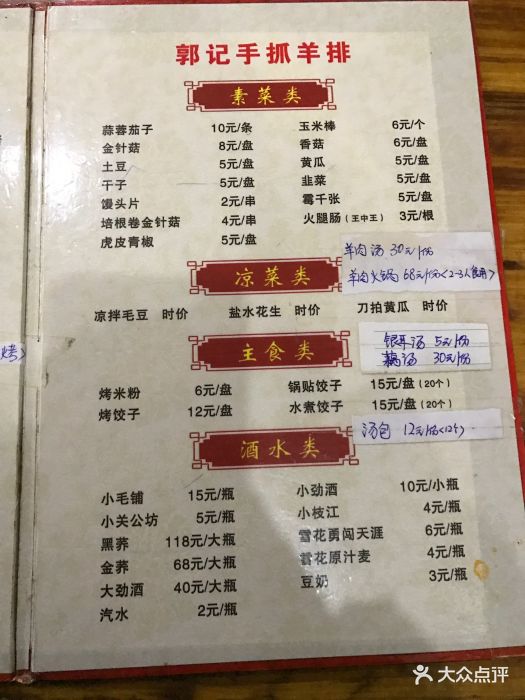 郭记手抓羊排
素菜类
蒜蓉茄子 10元/条 玉米棒 6元/个
金针菇 8元/盘 香菇 6元/盘
土豆 5元/盘 黄瓜 5元/盘
干子 5元/盘 韭菜 5元/盘
馒头片 2元/串 霉千张 5元/盘
培根卷金针菇 4元/串 火腿肠(王中王) 3元/根
虎皮青椒 5元/盘
羊肉汤 30元/份
羊肉火锅 68元/份<2-3人食用>
凉菜类
凉拌毛豆 时价 盐水花生 时价 刀拍黄瓜 时价
银耳汤 5元/份
藕汤 30元/份
主食类
烤米粉 6元/盘 锅贴饺子 15元/盘(20个)
烤饺子 12元/盘 水煮饺子 15元/盘(20个)
汤包 12元/份<12个>
烤>
酒水类
小毛铺 15元/瓶 小劲酒 10元/小瓶
小关公坊 5元/瓶 小枝江 4元/瓶
黑荞 118元/大瓶 雪花勇闯天涯 6元/瓶
金荞 68元/大瓶 雪花原汁麦 4元/瓶
大劲酒 40元/大瓶 豆奶 3元/瓶
汽水 2元/瓶
大众点评